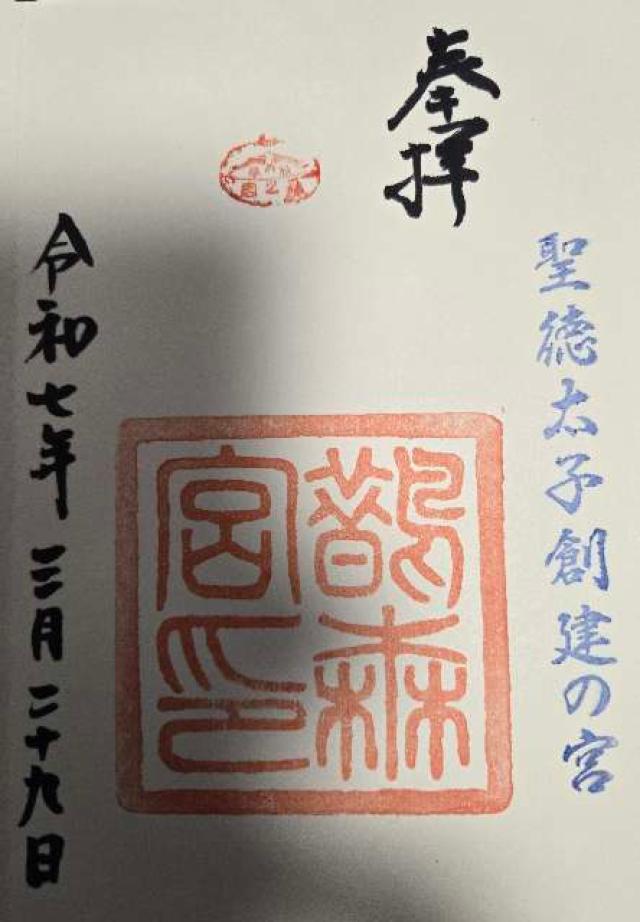 奉拝
聖徳太子創建の宮
鵲森
宮印
令和七年三月二十九日